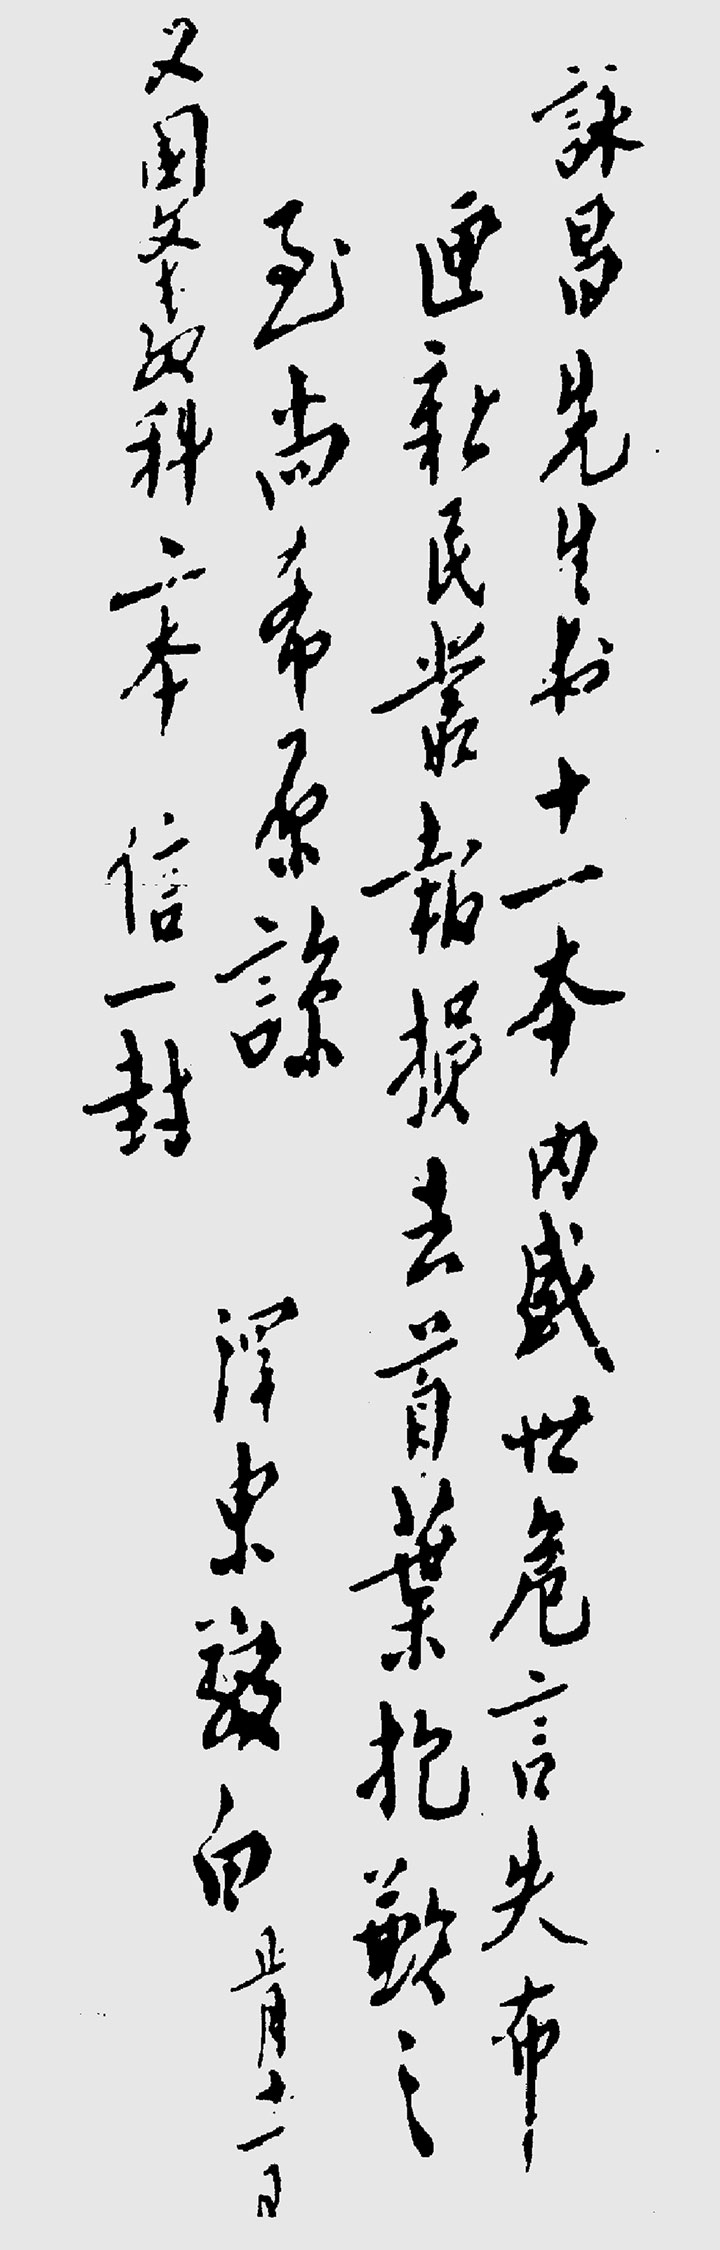 詠昌先生書十一本內盛世危言失布
匣新民叢報損去首葉抱歉之
至尚希原諒
澤東敬白正月十一日
又國文教科二本信一封